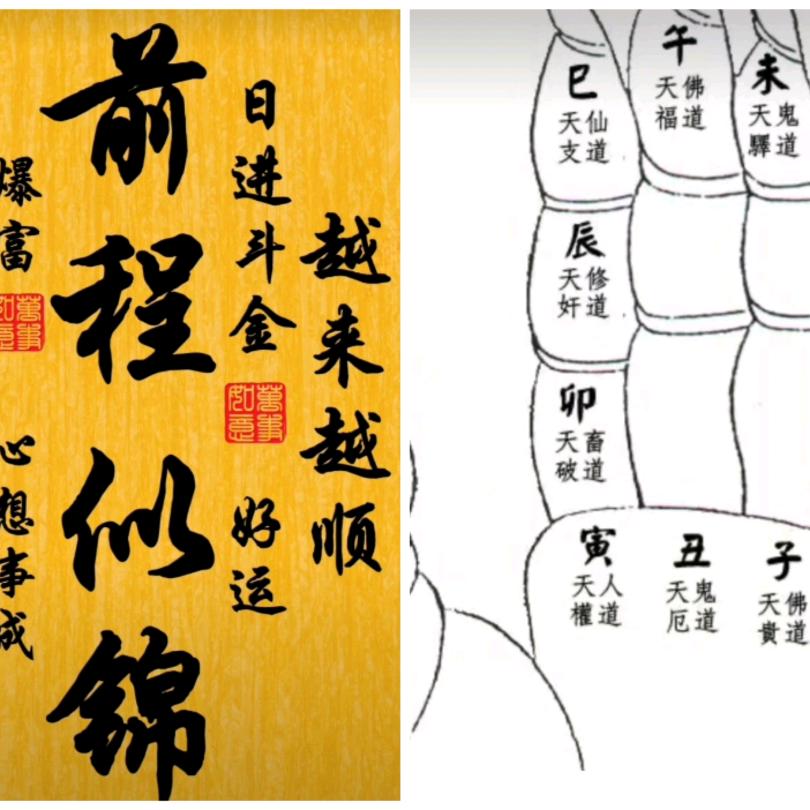 越来越顺
日进斗金
萬事
如意
好运
前程似锦
爆富
萬事
如意
心想事成
巳
仙道
天支
午
佛道
天福
未
鬼道
天驛
辰
修道
天奸
卯
畜道
天破
寅
人道
天權
丑
鬼道
天厄
子
佛道
天貴